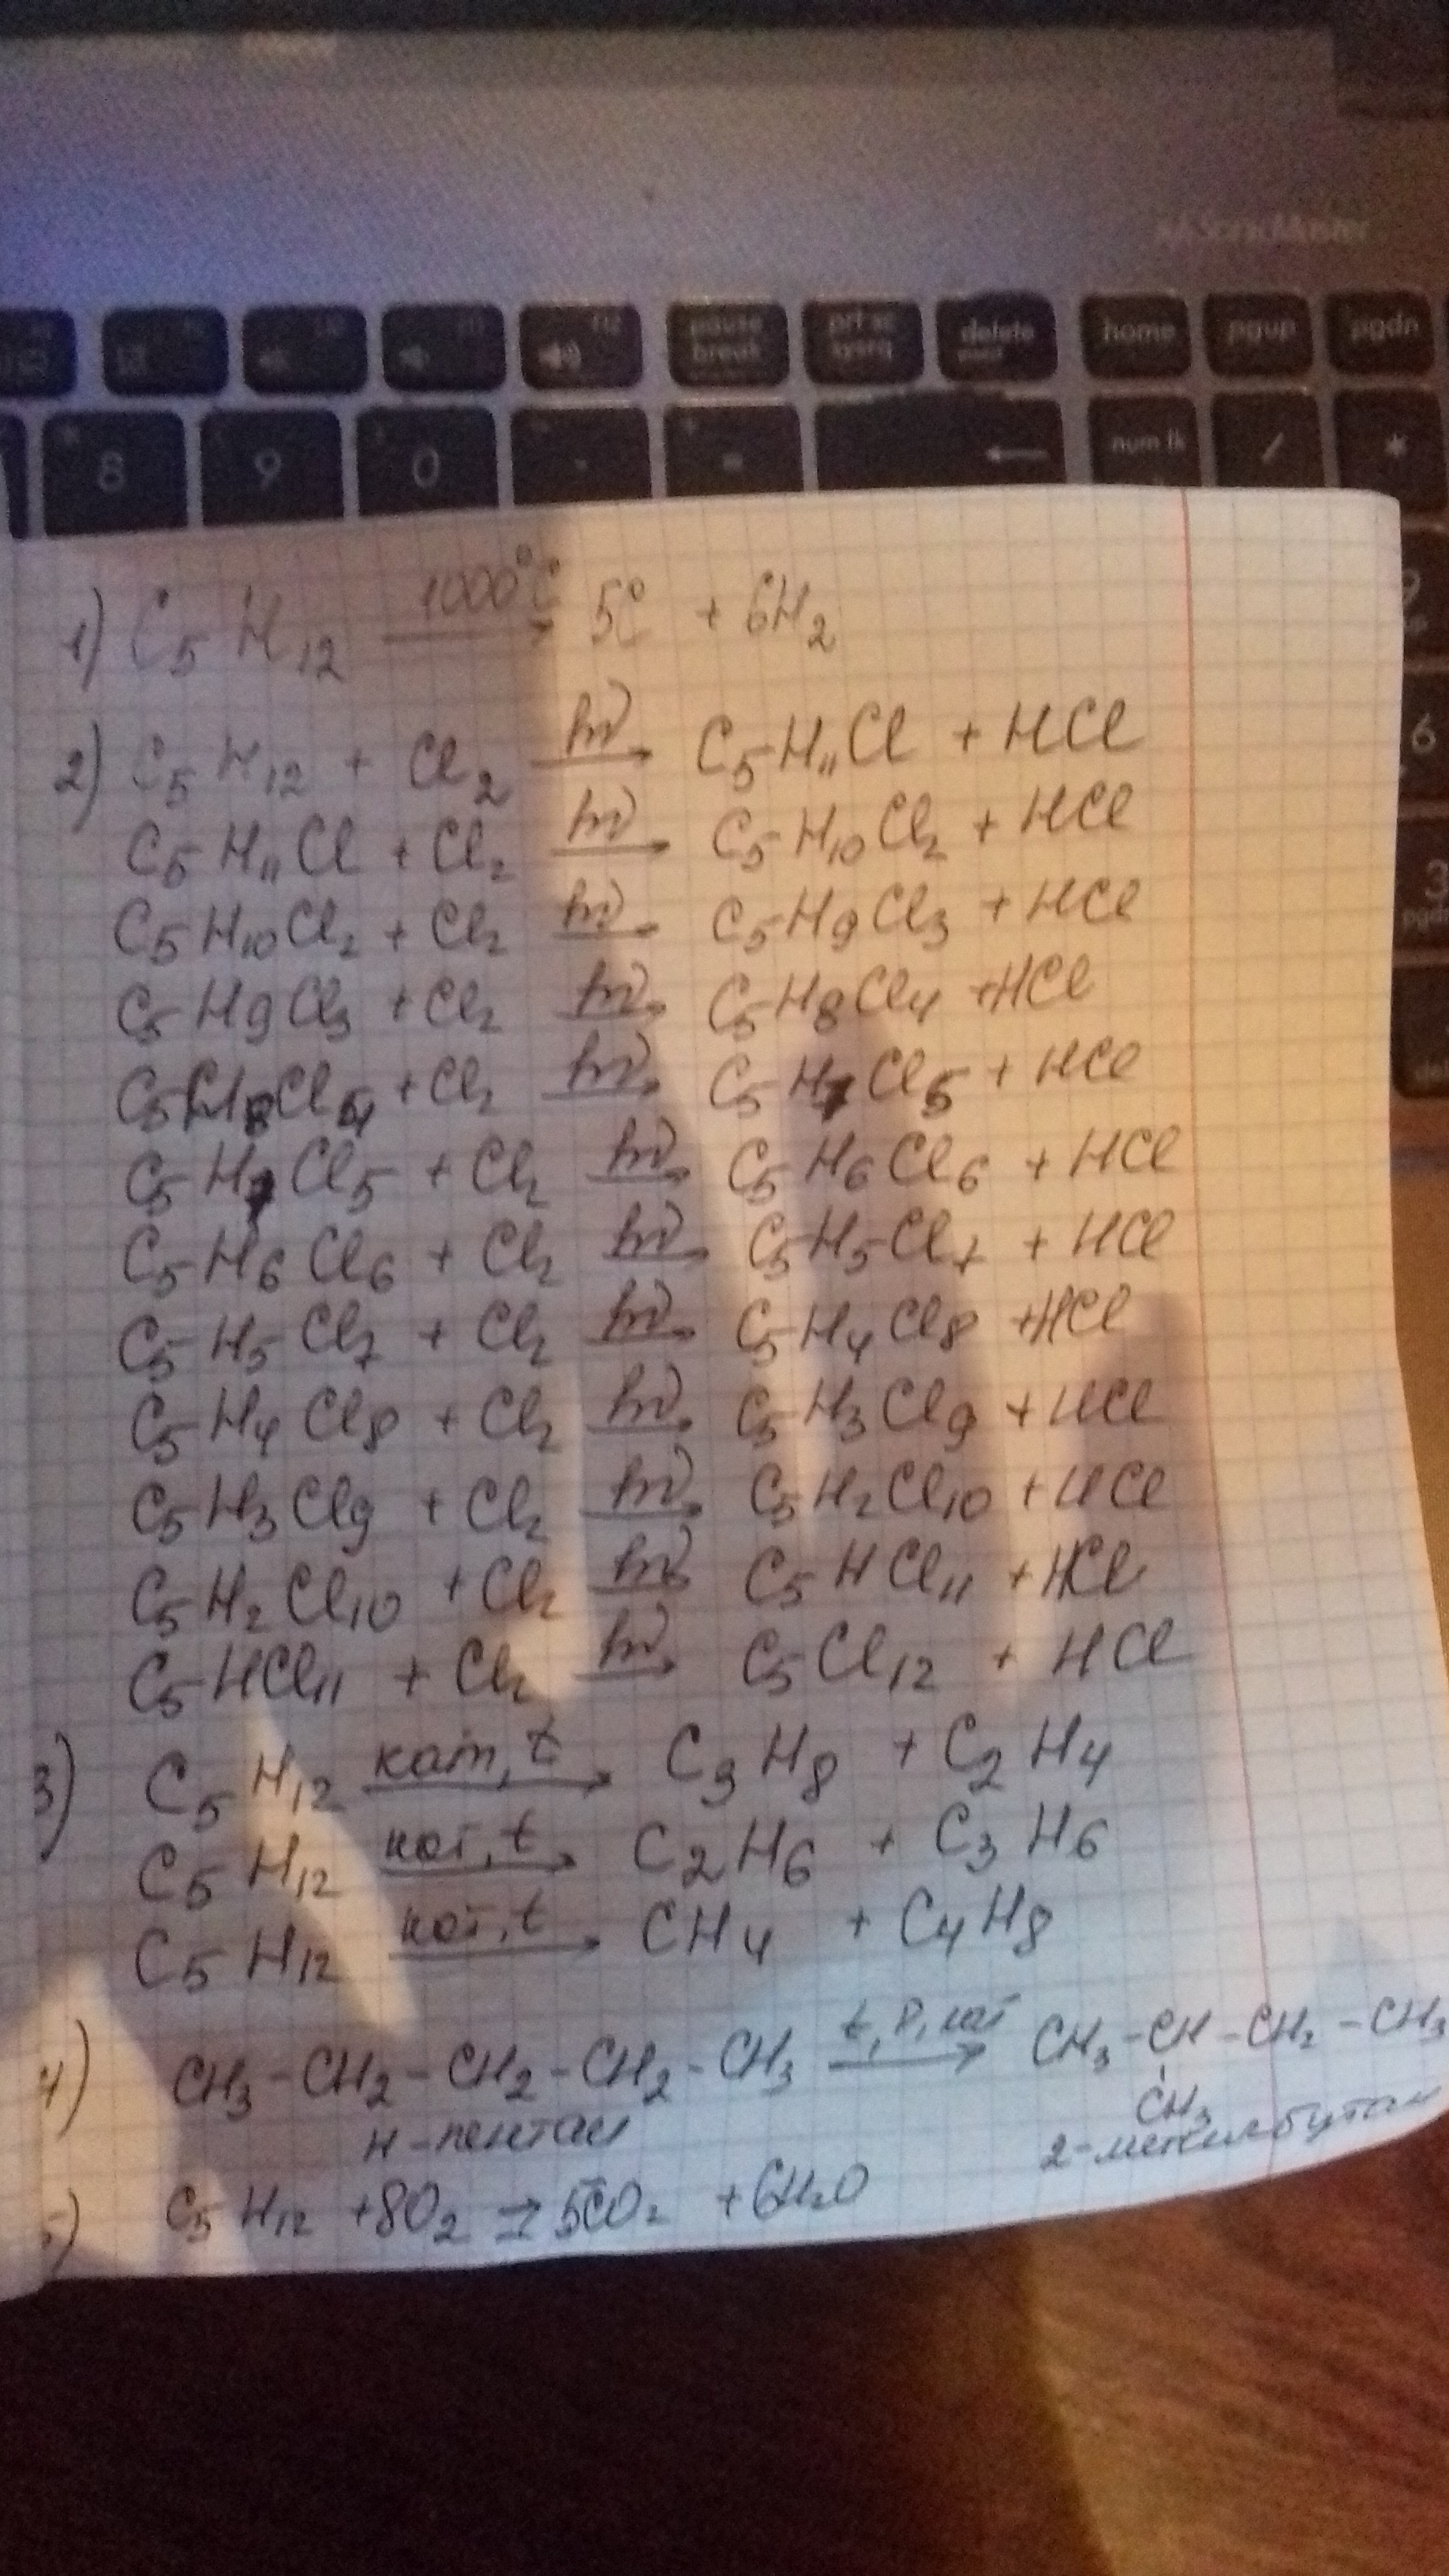 SonicMaster
f12
pause break
prt sc sysrq
delete
home
pgup
pgdn
8
9
0
-
=
num lk
/
*
6
3
1) C₅H₁₂ 1000°C → 5C + 6H₂
2) C₅H₁₂ + Cl₂ hν → C₅H₁₁Cl + HCl
C₅H₁₁Cl + Cl₂ hν → C₅H₁₀Cl₂ + HCl
C₅H₁₀Cl₂ + Cl₂ hν → C₅H₉Cl₃ + HCl
C₅H₉Cl₃ + Cl₂ hν → C₅H₈Cl₄ + HCl
C₅H₈Cl₄ + Cl₂ hν → C₅H₇Cl₅ + HCl
C₅H₇Cl₅ + Cl₂ hν → C₅H₆Cl₆ + HCl
C₅H₆Cl₆ + Cl₂ hν → C₅H₅Cl₇ + HCl
C₅H₅Cl₇ + Cl₂ hν → C₅H₄Cl₈ + HCl
C₅H₄Cl₈ + Cl₂ hν → C₅H₃Cl₉ + HCl
C₅H₃Cl₉ + Cl₂ hν → C₅H₂Cl₁₀ + HCl
C₅H₂Cl₁₀ + Cl₂ hν → C₅HCl₁₁ + HCl
C₅HCl₁₁ + Cl₂ hν → C₅Cl₁₂ + HCl
3) C₅H₁₂ кат, t → C₃H₈ + C₂H₄
C₅H₁₂ кат, t → C₂H₆ + C₃H₆
C₅H₁₂ кат, t → CH₄ + C₄H₈
4) CH₃-CH₂-CH₂-CH₂-CH₃ t, P, кат → CH₃-CH-CH₂-CH₃
CH₃
н-пентан 2-метилбутан
5) C₅H₁₂ + 8O₂ → 5CO₂ + 6H₂O